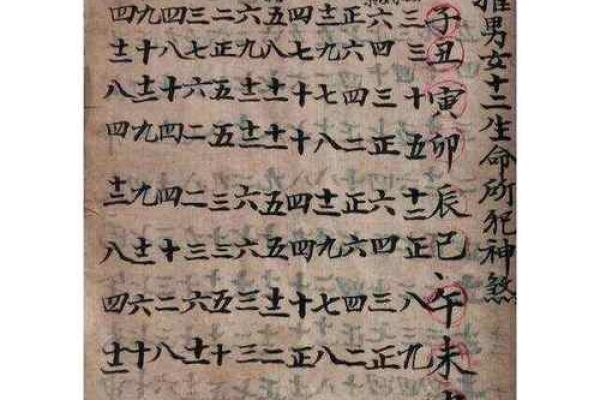 推男女十二生命所犯神煞
子丑寅卯辰巳午未
三三十五十二正八九
六四三正六四三正
正六四二正六四二
十二九七八十二九七八
四七十十四五十正
五八十一十二五四十二二
六九十二十一六六三三
二正五五三三五十
三七六二二三六十一
四八十四四十二八
九十十二九九十二六十
四十二八四十二八四十二